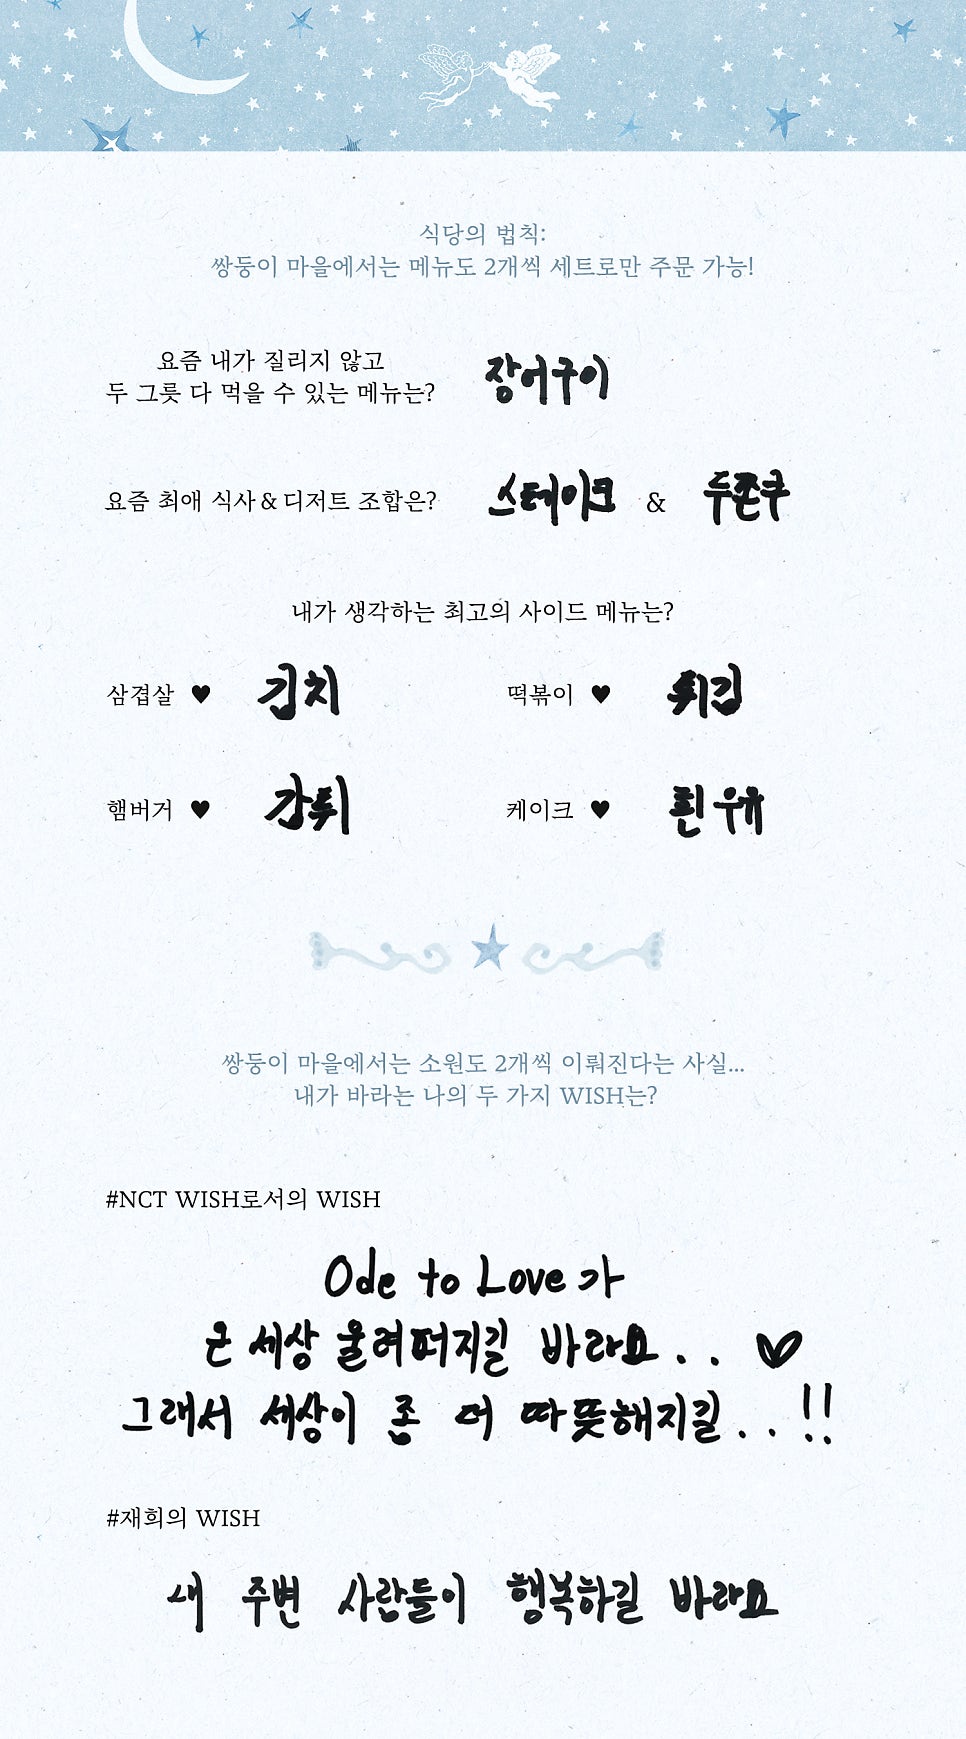 식당의 법칙:
쌍둥이 마을에서는 메뉴도 2개씩 세트로만 주문 가능!
요즘 내가 질리지 않고
두 그릇 다 먹을 수 있는 메뉴는?
장어구이
요즘 최애 식사 & 디저트 조합은? 스테이크 & 두쫀쿠
내가 생각하는 최고의 사이드 메뉴는?
삼겹살 ♥ 김치 떡볶이 ♥ 튀김
햄버거 ♥ 감튀 케이크 ♥ 흰 우유
쌍둥이 마을에서는 소원도 2개씩 이뤄진다는 사실...
내가 바라는 나의 두 가지 WISH는?
#NCT WISH로서의 WISH
Ode to Love 가
온 세상 울려퍼지길 바라요 . . ♡
그래서 세상이 좀 더 따뜻해지길 . . !!
#재희의 WISH
내 주변 사람들이 행복하길 바라요